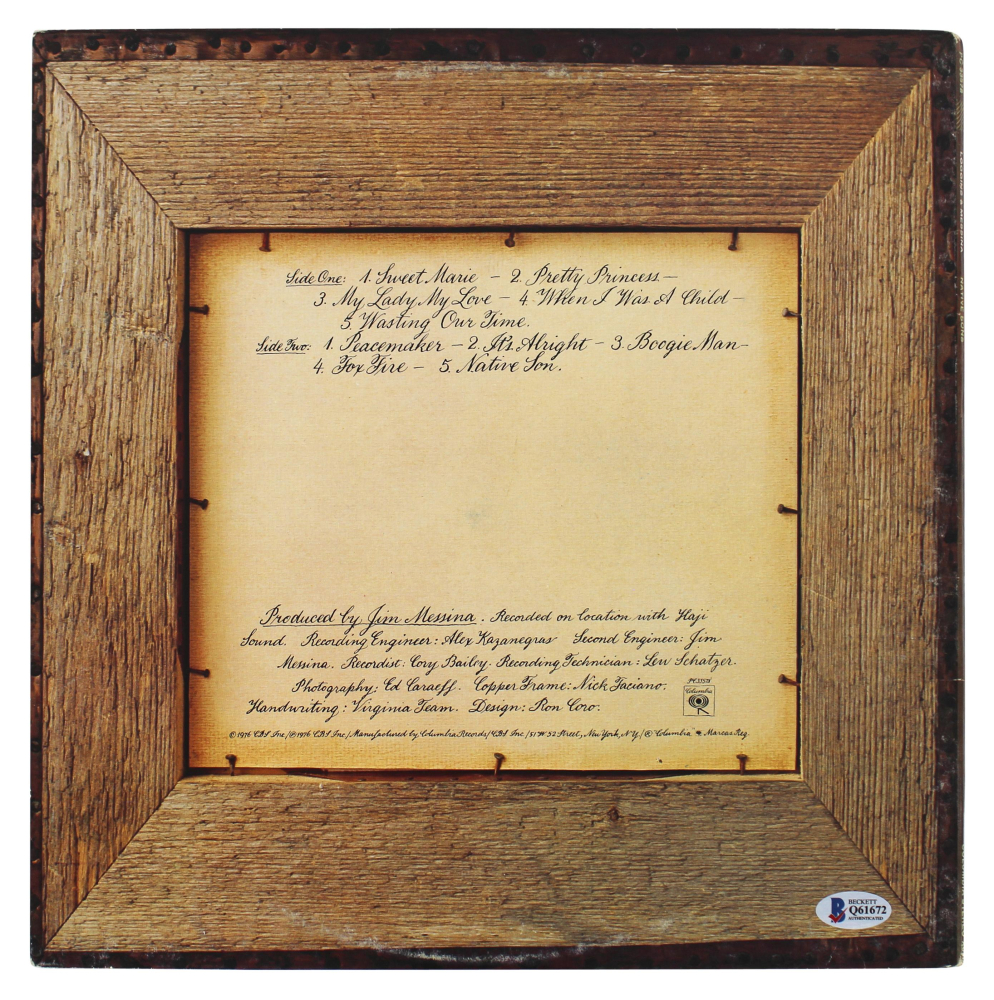 Side One: 1. Sweet Marie – 2. Pretty Princess –
3. My Lady, My Love – 4. When I Was A Child –
5. Wasting Our Time.
Side Two: 1. Peacemaker – 2. It's Alright – 3. Boogie Man –
4. Fox Fire – 5. Native Son.
Produced by Jim Messina. Recorded on location with Haji
Sound. Recording Engineer: Alex Kazanegras Second Engineer: Jim
Messina. Recordist: Cory Bailey. Recording Technician: Lew Schatzer.
Photography: Ed Caraeff. Copper Frame: Nick Taciano.
Handwriting: Virginia Team. Design: Ron Coro.
Columbia
© 1976 CBS Inc./℗ 1976 CBS Inc./Manufactured by Columbia Records/CBS Inc./51 W. 52 Street, New York, N.Y./® Columbia Marcas Reg.
BECKETT
Q61672
AUTHENTICATED